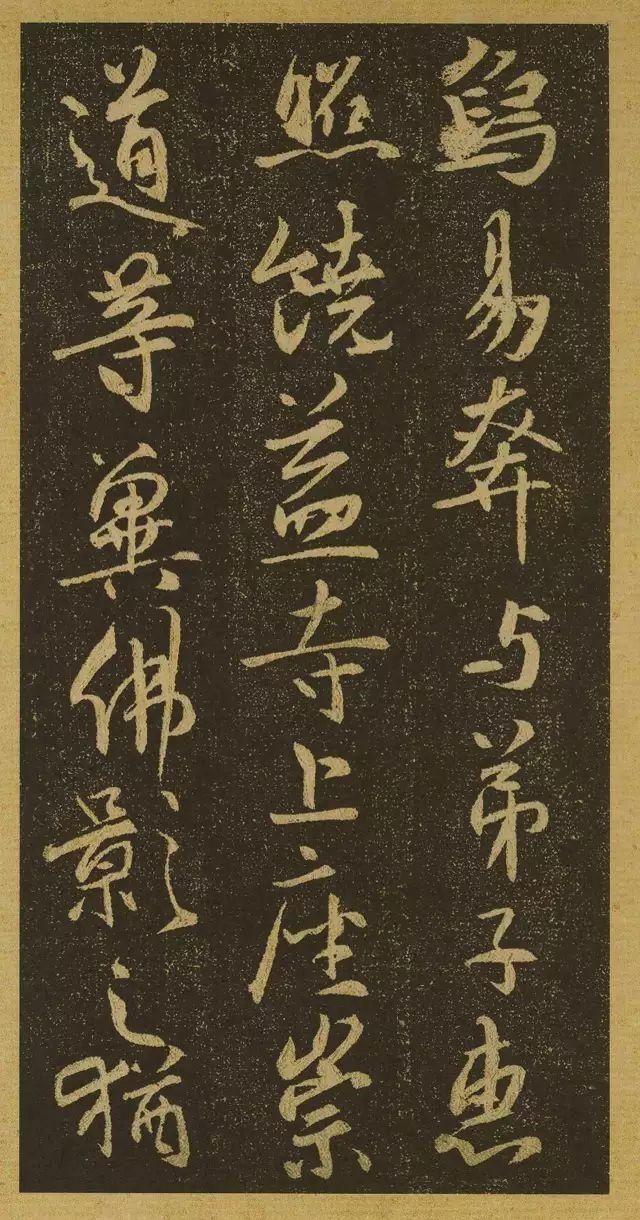 易奔与弟子惠
照饒益寺上座崇
道等冀佛影之猶